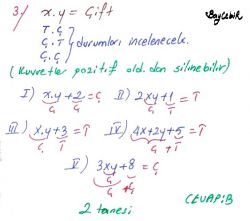 3/ x.y = Çift
Bayçelik
T.Ç
Ç.T } durumları incelenecek.
Ç.Ç
(Kuvvetler pozitif old. dan silinebilir)
I) x.y+2=Ç II) 2xy+1=T
Ç Ç Ç T
III) x.y+3=T IV) 4x+2y+5=T
Ç T Ç + T
V) 3xy+8=Ç
Ç +Ç
2 tanesi
CEVAP:B